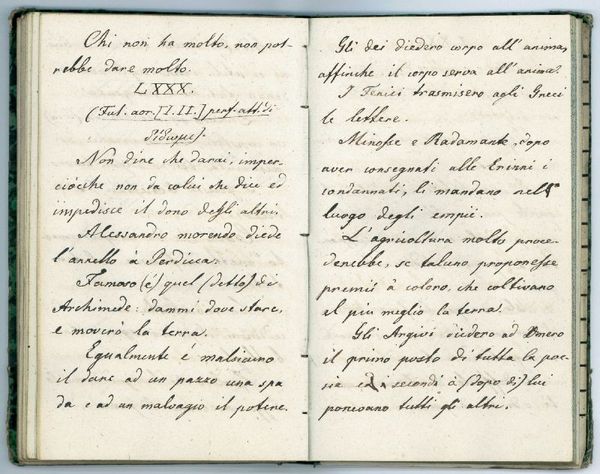 Chi non ha molto, non pot-
rebbe dare molto.
LXXX.
(Fut. aor. [I. II.] perf. att. di
δίδωμι).
Non dire che darai, imper-
ciocche non da colui che dice ed
impedisce il dono degli altri.
Alessandro morendo diede
l'anello à Perdicca.
Famoso (è) quel (detto) di
Archimede: dammi dove stare,
e moverò la terra.
Egualmente è malsicuro
il dare ad un pazzo una spa
da e ad un malvagio il potere.
Gli dei diedero corpo all' anima,
affinche il corpo serva all' anima.
I Fenici trasmisero agli Greci
le lettere.
Minosse e Radamante, dopo
aver consegnati alle Erinni i
condannati, li mandano nel
luogo degli empii.
L'agricoltura molto proce-
derebbe, se taluno proponesse
premii à coloro, che coltivano
il piu meglio la terra.
Gli Argivi diedero ad Omero
il primo posto di tutta la poe-
sia e secondi à (dopo di) lui
ponevano tutti gli altri.